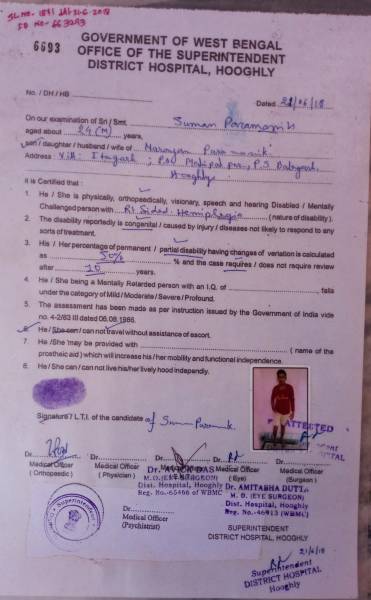 SL.No. 1841 21-6-2018
ID No- 663293
6693
GOVERNMENT OF WEST BENGAL
OFFICE OF THE SUPERINTENDENT
DISTRICT HOSPITAL, HOOGHLY
No. / DH / HB
Dated 21/06/18
On our examination of Sri / Smt. Suman Paramanik
aged about 24 (M) years,
son / daughter / husband / wife of Narayan Paramanik
Address : Vill: Itagarh ; P.O. P.S.
Hooghly
It is Certified that :
1. He / She is physically, orthopaedically, visionary, speech and hearing Disabled / Mentally
Challenged person with Rt Sided Hemiplegia ( nature of disability ).
2. The disability reportedly is congenital / caused by injury / diseases not likely to respond to any
sorts of treatment.
3. His / Her percentage of permanent / partial disability having changes of variation is calculated
as 50% % and the case requires / does not require review
after 10 years.
4. He / She being a Mentally Retarded person with an I.Q. of falls
under the category of Mild / Moderate / Severe / Profound.
5. The assessment has been made as per instruction issued by the Government of India vide
no. 4-2/83 III dated 06.08.1986.
6. He / She can / can not travel without assistance of escort.
7. He /She may be provided with ( name of the
prostheic aid ) which will increase his / her mobility and functional independence.
8. He / She can / can not live his/her lively hood independly.
ATTESTED
Signature / L.T.I. of the candidate of Suman Paramanik
Dr. Dr. Dr. Dr. Dr.
Medical Officer Medical Officer Medical Officer Medical Officer Medical Officer
( Orthopaedic ) ( Physician ) (Eye) (Surgeon)
DAS
M.S.(EYE SURGEON)
Dist. Hospital, Hooghly
Reg. No.-65466 of WBMC
Dr. AMITABHA DUTTA
M. S. (EYE SURGEON)
Dist. Hospital, Hooghly
Reg. No.-46913 (WBMC)
Dr.
Medical Officer
(Psychiatrist)
SUPERINTENDENT
DISTRICT HOSPITAL, HOOGHLY
21/6/18
Superintendent
DISTRICT HOSPITAL
Hooghly